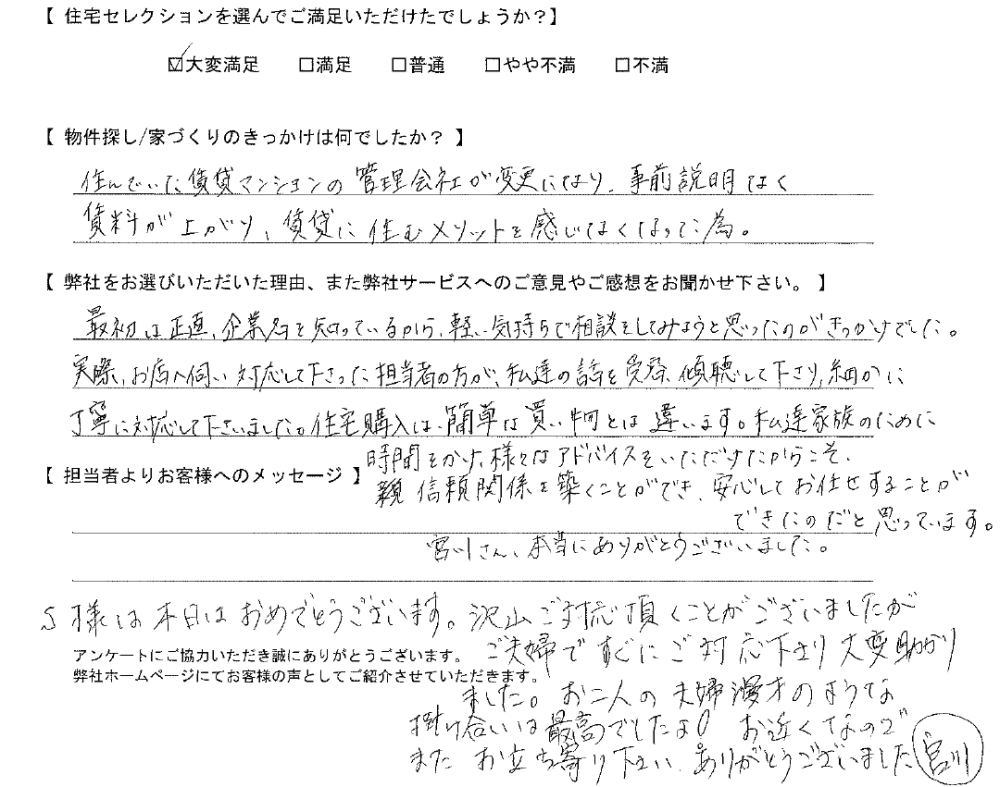 【 住宅セレクションを選んでご満足いただけたでしょうか？】
☑大変満足 □満足 □普通 □やや不満 □不満
【 物件探し/家づくりのきっかけは何でしたか？ 】
住んでいた賃貸マンションの管理会社が変更になり、事前説明なく
賃料が上がり、賃貸に住むメリットを感じなくなった為。
【 弊社をお選びいただいた理由、また弊社サービスへのご意見やご感想をお聞かせ下さい。 】
最初は正直、企業名を知っているから、軽い気持ちで相談をしてみようと思ったのがきっかけでした。
実際、お店へ伺い対応して下さった担当者の方が、私達の話を受容、傾聴して下さり、細かに
丁寧に対応して下さいました。住宅購入は、簡単な買い物とは違います。私達家族のために
時間をかけ、様々なアドバイスをいただけたからこそ、
【 担当者よりお客様へのメッセージ 】
信頼関係を築くことができ、安心してお任せすることが
できたのだと思っています。
宮川さん、本当にありがとうございました。
S様は本日はおめでとうございます。沢山ご対応頂くことがございましたが
アンケートにご協力いただき誠にありがとうございます。
ご夫婦ですぐにご対応下さり大変助かり
弊社ホームページにてお客様の声としてご紹介させていただきます。
ました。お二人の夫婦漫才のような
掛け合いは最高でしたよ! お近くなので
またお立ち寄り下さい。ありがとうございました 宮川